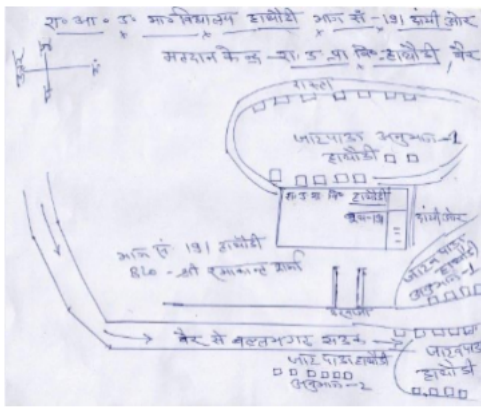 रा॰ आ॰ उ॰ मा॰ विद्यालय हाथौडी भाग सं - 191 दांयी ओर
मतदान केन्द्र - रा. उ. प्रा. वि॰ हाथौडी, वैर
रास्ता
जाटव पाडा अनुभाग-1
हाथौडी
रा.उ.प्रा वि॰ हाथौडी
दांयी ओर
भाग सं 191 हाथौडी
BLO - श्री रमाकान्त शर्मा
जाटव पाडा
हाथौडी
अनुभाग-1
वैर से वल्लभगढ सडक
जाटव पाडा हाथौडी
अनुभाग-2
जाटव पाडा
हाथौडी